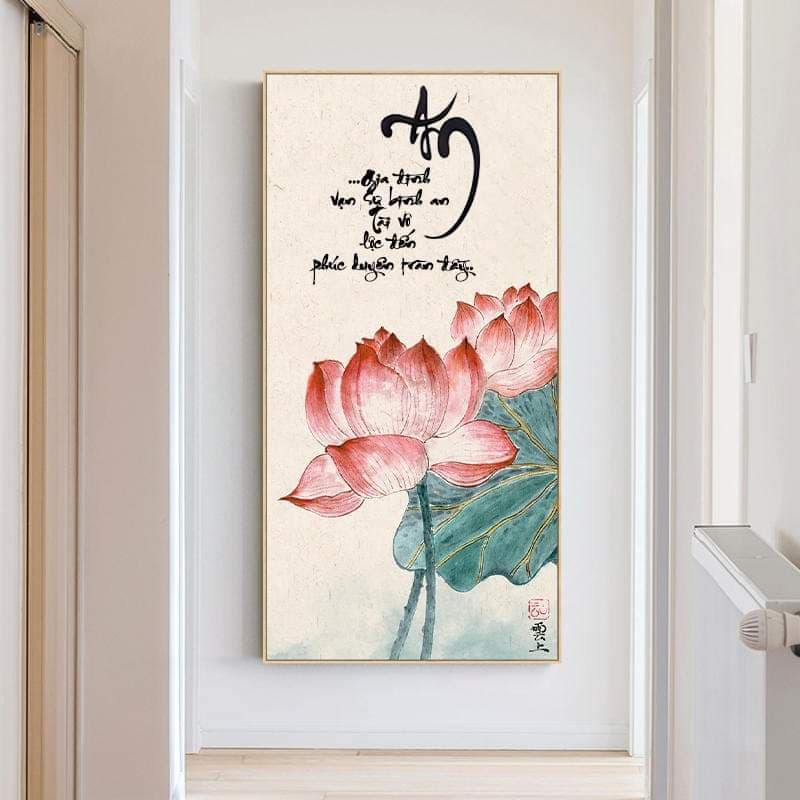 An
...Gia đình
vạn sự bình an
Tài vô
lộc đến
phúc duyên tràn đầy..
雲
上